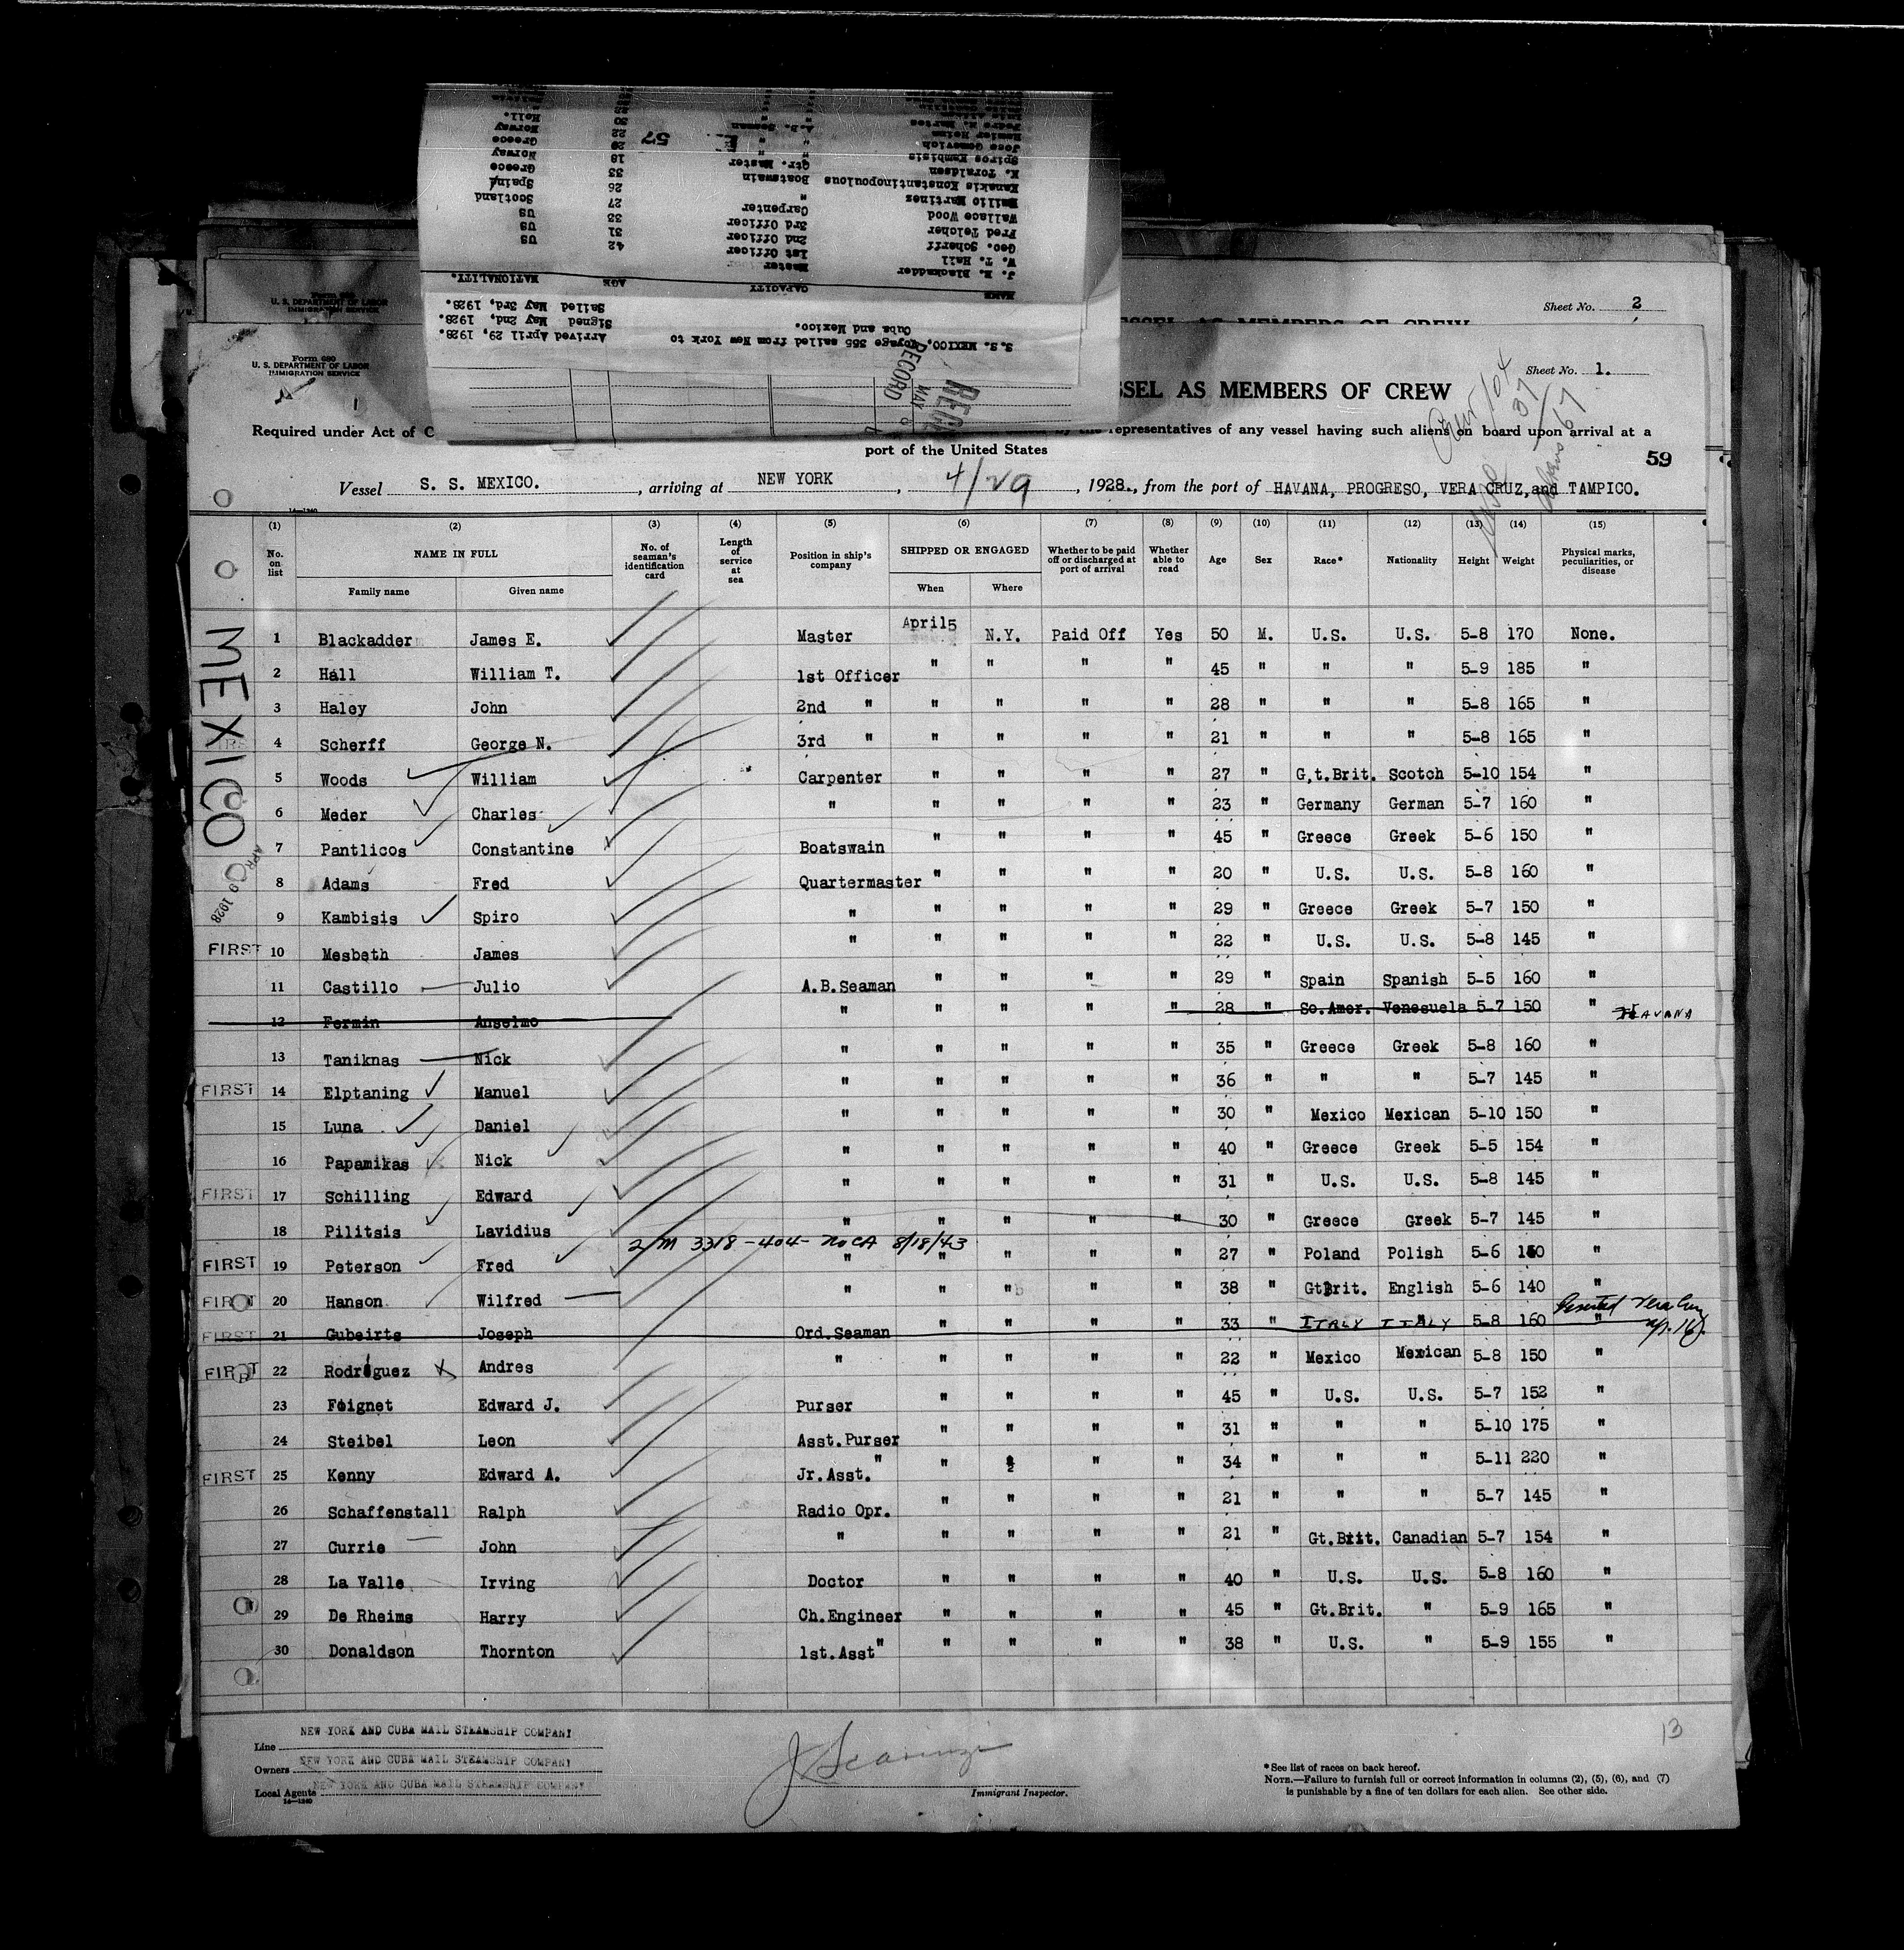 Holl.
Pedro M. Martes 30
Norway
Hamier Heims A.B. Seaman 22
Greece
Jose Gomovich " 29 57
Spiros Kambisis " 18 Norway
K. Toraldsen Qtr. Master 33 Greece
Kanakis Konstantinopoulous Boatswain 26 Spain
Martinez " 27 Scotland
Wallace Wood Carpenter 33 US
Fred Teicher 3rd Officer 31 US
Geo. Scherff 2nd Officer 42 US
W. T. Hall 1st Officer
J. E. Blackadder Master
NAME CAPACITY AGE NATIONALITY.
Sailed May 3rd, 1928.
Signed May 2nd, 1928.
Arrived April 29, 1928.
Cuba and Mexico.
S.S. MEXICO, Voyage 355 sailed from New York to
RECORD
MAY 8
U. S. DEPARTMENT OF LABOR
IMMIGRATION SERVICE
Sheet No. 2
Form 680
U. S. DEPARTMENT OF LABOR
IMMIGRATION SERVICE
Sheet No. 1.
SSEL AS MEMBERS OF CREW
Required under Act of C representatives of any vessel having such aliens on board upon arrival at a
port of the United States
59
Vessel S. S. MEXICO. , arriving at NEW YORK , 4/29 , 1928., from the port of HAVANA, PROGRESO, VERA CRUZ,and TAMPICO.
14—1240
(1) (2) (3) (4) (5) (6) (7) (8) (9) (10) (11) (12) (13) (14) (15)
No. on list NAME IN FULL No. of seaman's identification card Length of service at sea Position in ship's company SHIPPED OR ENGAGED Whether to be paid off or discharged at port of arrival Whether able to read Age Sex Race* Nationality Height Weight Physical marks, peculiarities, or disease
Family name Given name When Where
MEXICO
APR 29 1928
1 Blackadder James E. Master April5 N.Y. Paid Off Yes 50 M. U.S. U.S. 5-8 170 None.
2 Hall William T. 1st Officer " " " " 45 " " " 5-9 185 "
3 Haley John 2nd " " " " " 28 " " " 5-8 165 "
4 Scherff George N. 3rd " " " " " 21 " " " 5-8 165 "
5 Woods William Carpenter " " " " 27 " G.t.Brit. Scotch 5-10 154 "
6 Meder Charles " " " " " 23 " Germany German 5-7 160 "
7 Pantlicos Constantine Boatswain " " " " 45 " Greece Greek 5-6 150 "
8 Adams Fred Quartermaster " " " " 20 " U.S. U.S. 5-8 160 "
9 Kambisis Spiro " " " " " 29 " Greece Greek 5-7 150 "
FIRST 10 Mesbeth James " " " " " 22 " U.S. U.S. 5-8 145 "
11 Castillo Julio A.B.Seaman " " " " 29 " Spain Spanish 5-5 160 "
12 Fermin Anselmo " " " " " 28 " So.Amer. Venesuela 5-7 150 " HAVANA
13 Taniknas Nick " " " " " 35 " Greece Greek 5-8 160 "
FIRST 14 Elptaning Manuel " " " " " 36 " " " 5-7 145 "
15 Luna Daniel " " " " " 30 " Mexico Mexican 5-10 150 "
16 Papamikas Nick " " " " " 40 " Greece Greek 5-5 154 "
FIRST 17 Schilling Edward " " " " " 31 " U.S. U.S. 5-8 145 "
18 Pilitsis Lavidius " " " " " 30 " Greece Greek 5-7 145 "
2/M 3318-404- no CA 8/18/43
FIRST 19 Peterson Fred " " " " " 27 " Poland Polish 5-6 150 "
FIRST 20 Hanson Wilfred " " " " " 38 " GtBrit. English 5-6 140 "
FIRST 21 Gubeirts Joseph Ord.Seaman " " " " 33 " ITALY ITALY 5-8 160 " Deserted Vera Cruz Ap. 16.
FIRST 22 Rodriguez Andres " " " " " 22 " Mexico Mexican 5-8 150 "
23 Foignet Edward J. Purser " " " " 45 " U.S. U.S. 5-7 152 "
24 Steibel Leon Asst.Purser " " " " 31 " " " 5-10 175 "
FIRST 25 Kenny Edward A. Jr.Asst. " " " " 34 " " " 5-11 220 "
26 Schaffenstall Ralph Radio Opr. " " " " 21 " " " 5-7 145 "
27 Currie John " " " " " 21 " Gt.Brit. Canadian 5-7 154 "
28 La Valle Irving Doctor " " " " 40 " U.S. U.S. 5-8 160 "
29 De Rheims Harry Ch.Engineer " " " " 45 " Gt.Brit. " 5-9 165 "
30 Donaldson Thornton 1st.Asst" " " " " 38 " U.S. " 5-9 155 "
13
Line NEW YORK AND CUBA MAIL STEAMSHIP COMPANY
Owners NEW YORK AND CUBA MAIL STEAMSHIP COMPANY
Local Agents NEW YORK AND CUBA MAIL STEAMSHIP COMPANY
14—1240
Immigrant Inspector.
*See list of races on back hereof.
NOTE.—Failure to furnish full or correct information in columns (2), (5), (6), and (7)
is punishable by a fine of ten dollars for each alien. See other side.